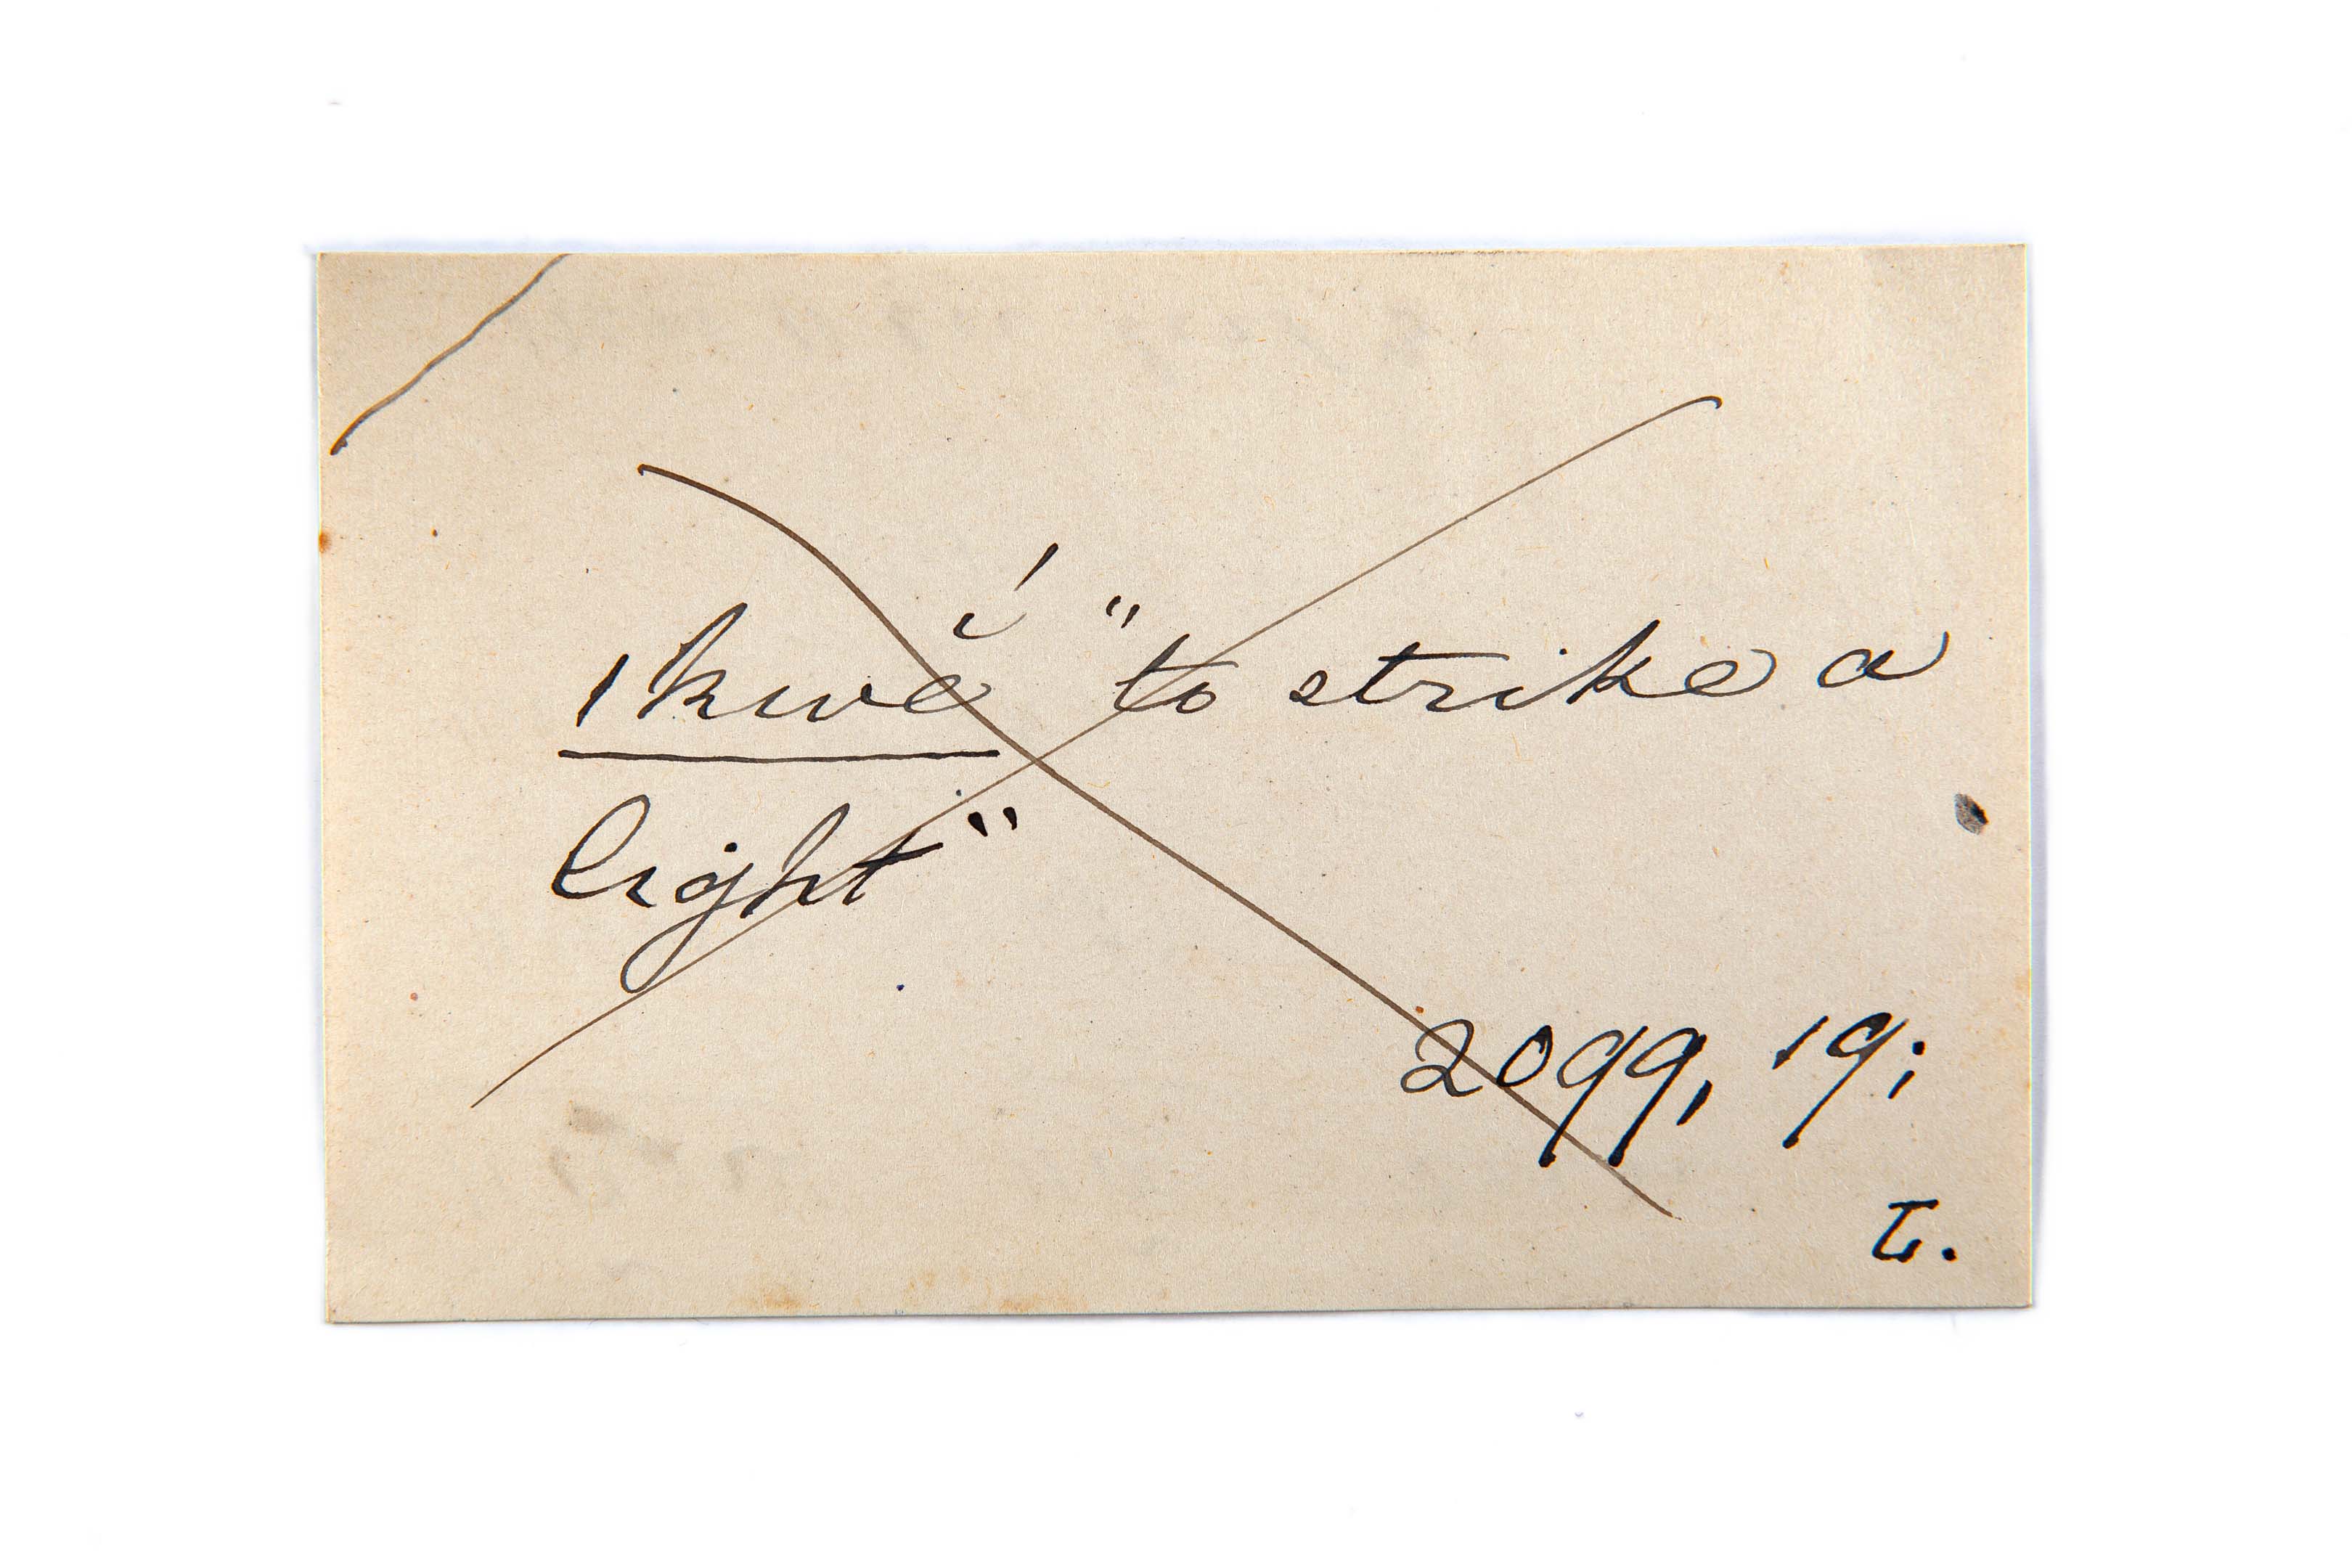 |kwĕ́ "to strike a
light"
2099, 19;
L.